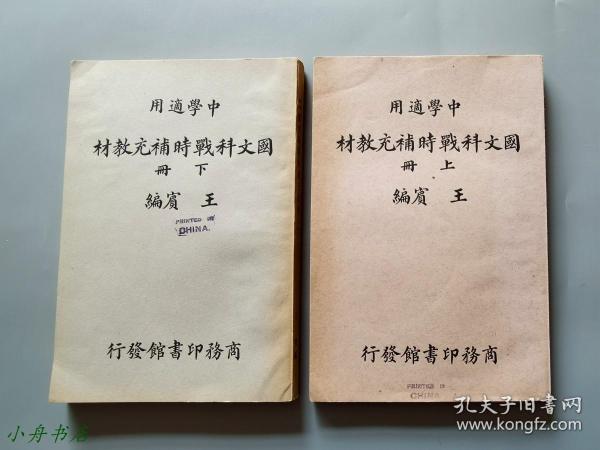 中學適用
國文科戰時補充教材
上冊
王賓編
商務印書館發行
PRINTED IN
CHINA
中學適用
國文科戰時補充教材
下冊
王賓編
PRINTED IN
CHINA.
商務印書館發行
小舟书店
孔夫子旧书网
www.kongfz.com